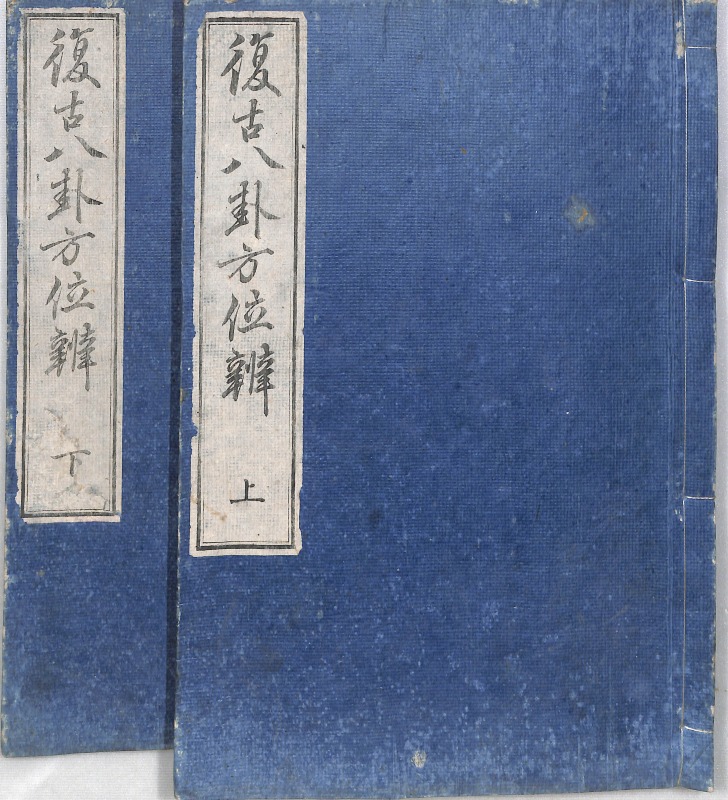 復古八卦方位辨 上
復古八卦方位辨 下